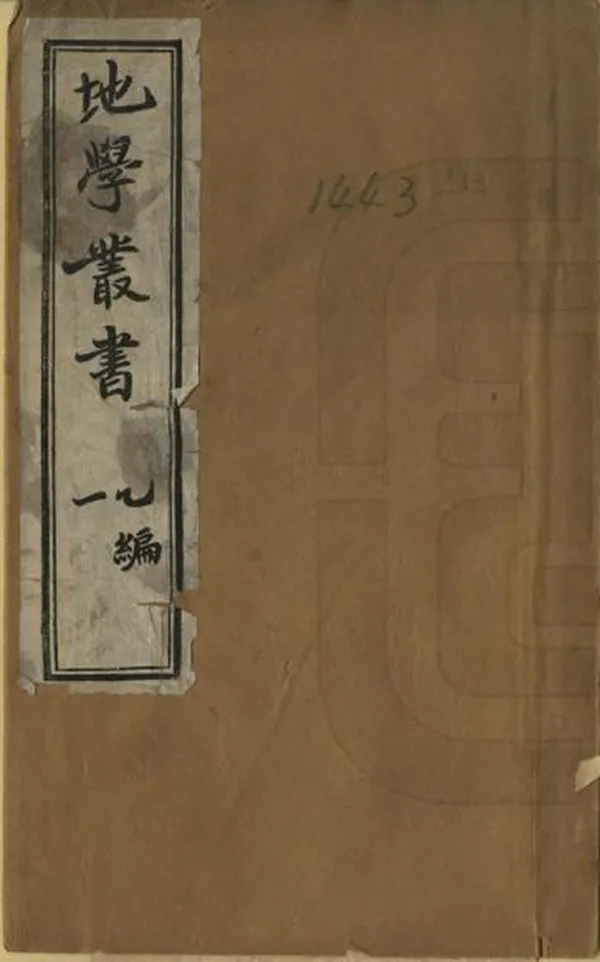 地學叢書
乙編
一
1443